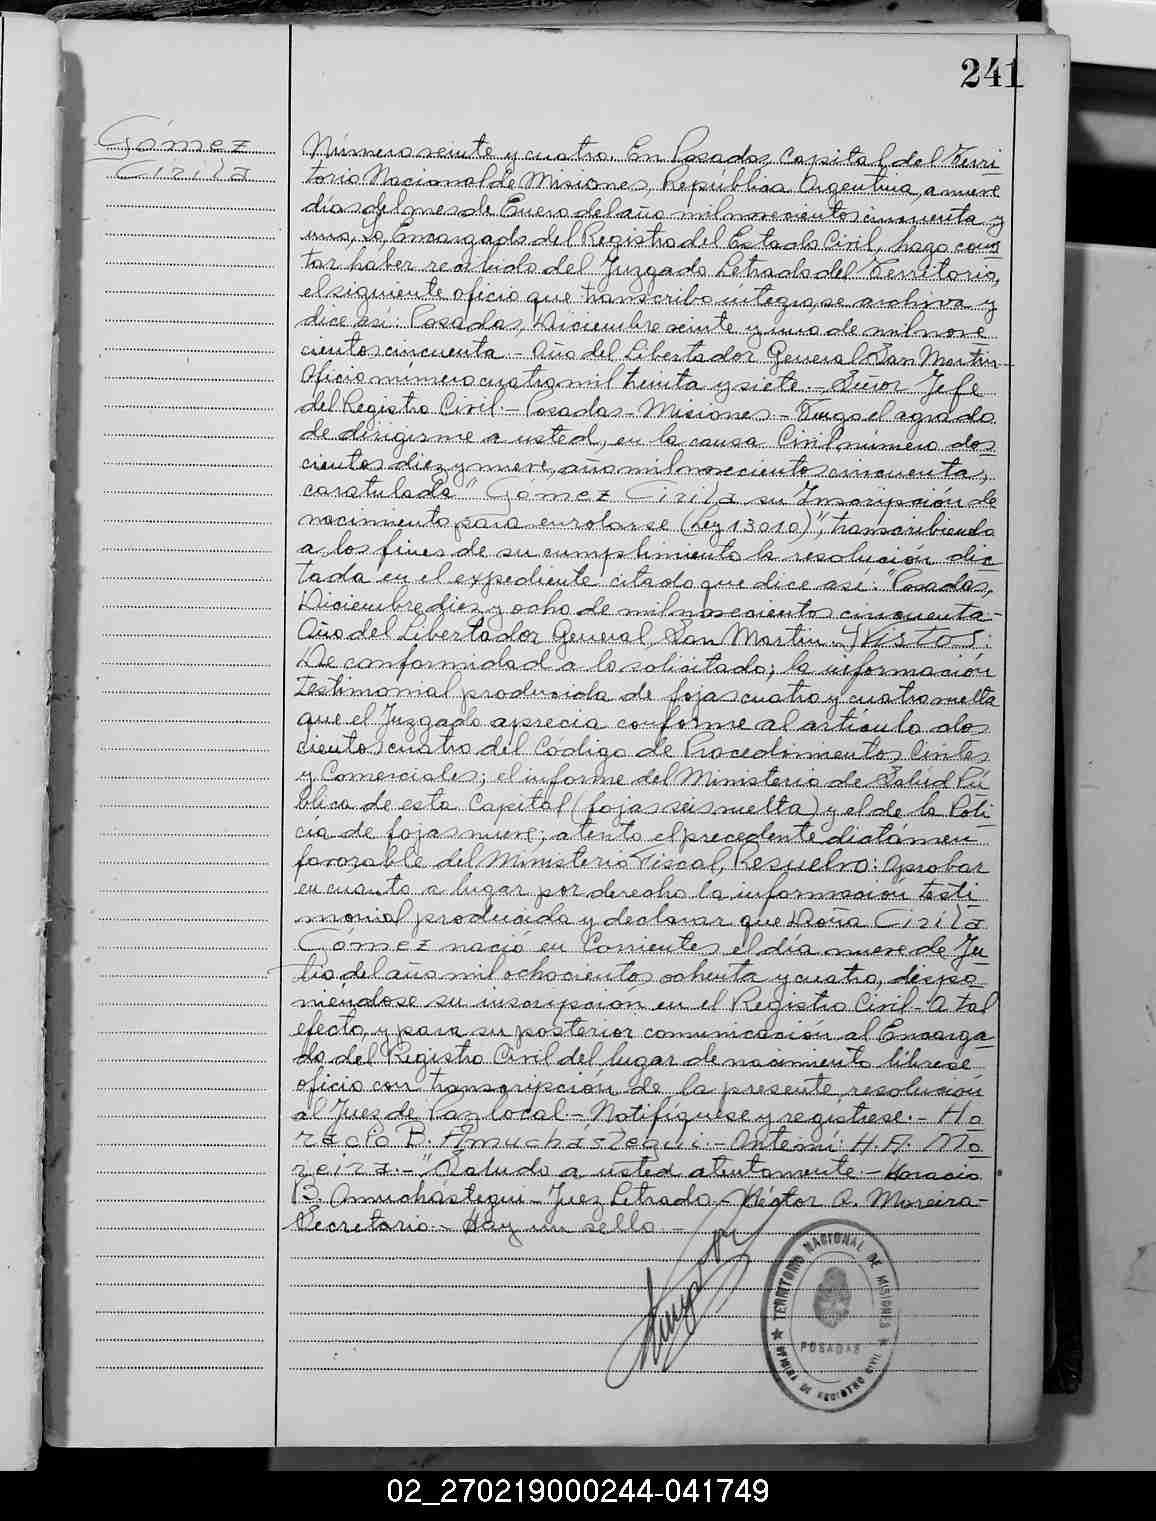 241
Gómez
Cirila
Número veinte y cuatro. En Posadas, Capital del Terri
torio Nacional de Misiones, República Argentina, a nueve
días del mes de Enero del año mil novecientos cincuenta y
uno, Yo, Encargado del Registro del Estado Civil, hago cons
tar haber recibido del Juzgado Letrado del Territorio,
el siguiente oficio que transcribo íntegro, se archiva y
dice así: Posadas, Diciembre veinte y uno de mil nove
cientos cincuenta - Año del Libertador General San Martín-
Oficio número cuatro mil treinta y siete. - Señor Jefe
del Registro Civil. - Posadas - Misiones - Tengo el agrado
de dirigirme a usted, en la causa Civil número dos
cientos diez y nueve, año mil novecientos cincuenta,
caratulada "Gómez Cirila su Inscripción de
nacimiento para enrolarse (Ley 13010)", transcribiendo
a los fines de su cumplimiento la resolución dic
tada en el expediente citado que dice así: "Posadas,
Diciembre diez y ocho de mil novecientos cincuenta-
Año del Libertador General San Martín. Y Vistos:
De conformidad a lo solicitado; la información
testimonial producida de fojas cuatro y cuatro vuelta
que el Juzgado aprecia conforme al artículo dos
cientos cuatro del Código de Procedimientos Civiles
y Comerciales; el informe del Ministerio de Salud Pú
blica de esta Capital (fojas seis vuelta) y el de la Poli
cía de fojas nueve; atento el precedente dictámen
favorable del Ministerio Fiscal, Resuelvo: Aprobar
en cuanto a lugar por derecho la información testi
monial producida y declarar que Doña Cirila
Gómez nació en Corrientes el día nueve de Ju
lio del año mil ochocientos ochenta y cuatro, dispo
niéndose su inscripción en el Registro Civil - A tal
efecto y para su posterior comunicación al Encarga
do del Registro Civil del lugar de nacimiento líbrese
oficio con transcripción de la presente resolución
al Juez de Paz local. - Notifíquese y regístrese. - Ho
racio B. Amuchástegui. - Ante mí: H. A. Mo
reira. - "Saludo a usted atentamente. - Horacio
B. Amuchástegui - Juez Letrado - Héctor A. Moreira-
Secretario - Hay un sello -
TERRITORIO NACIONAL DE MISIONES
POSADAS
REGISTRO CIVIL
02_270219000244-041749